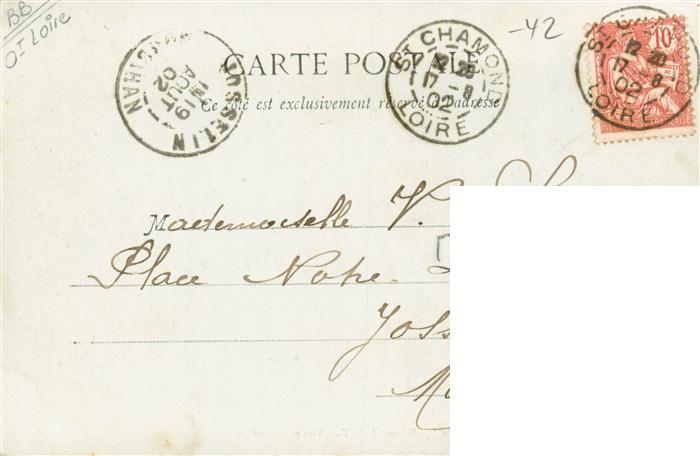 BB
Ot Loire
-42
CARTE POSTALE
Ce côté est exclusivement réservé à l'adresse
JOSSELIN
19
AOUT
02
MORBIHAN
ST CHAMOND
12 20
17 - 8
02
LOIRE
10c
12 20
17 8
02
LOIRE
Mademoiselle V.
Place Notre-
Joss